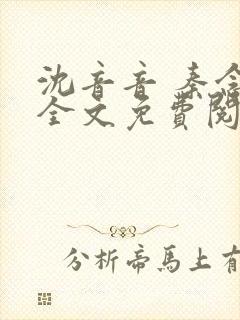 沈音音 秦
全文免費閱
分析帝馬上有